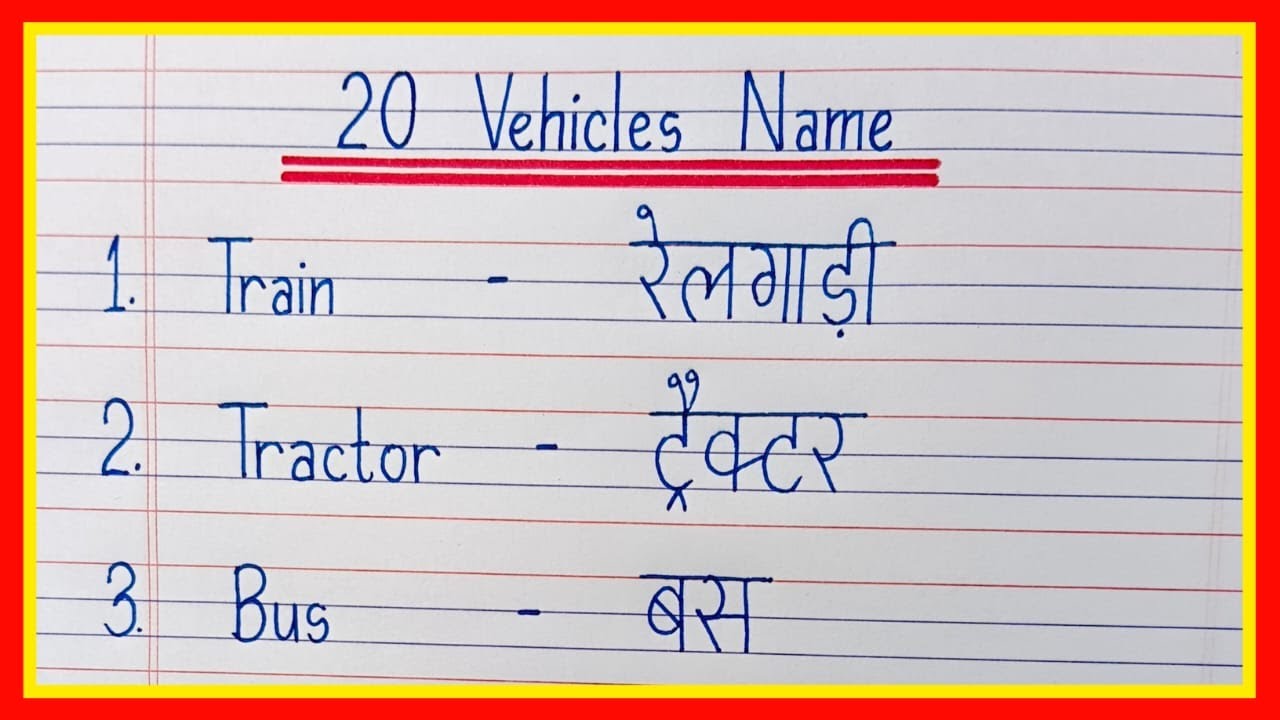 20 Vehicles Name
1. Train - रेलगाड़ी
2. Tractor - ट्रैक्टर
3. Bus - बस